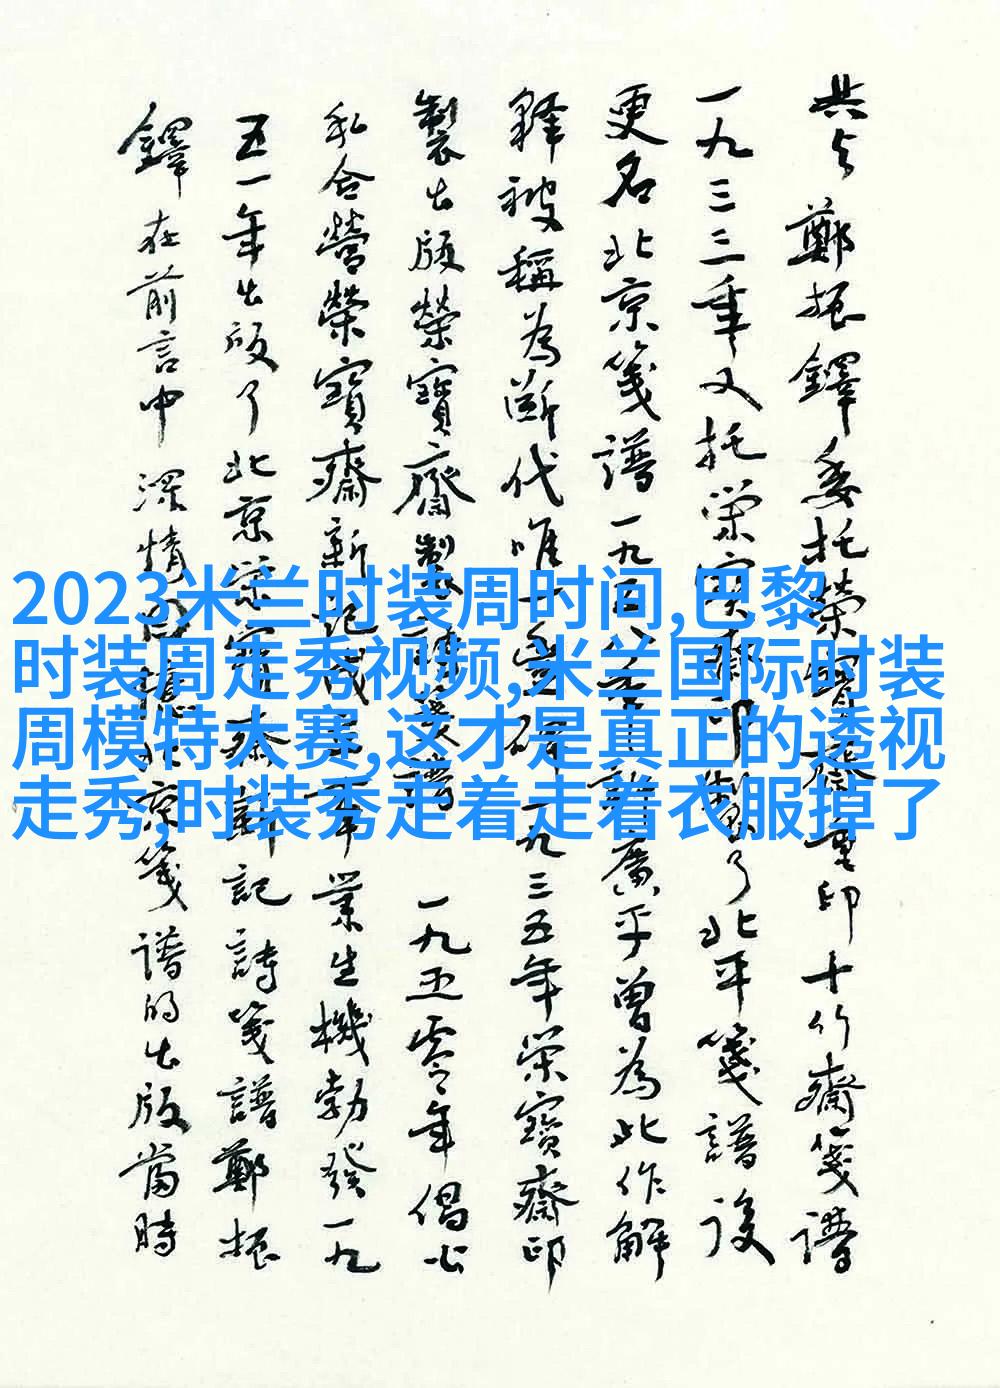 共与鄭振鐸委托榮寶齋重印十竹齋箋譜
一九三三年又托荣宝斋印製了北平箋譜後
更名北京箋譜一九五八年許廣平曾為此作解
釋被稱為斷代唯一豐碑一九三五年荣寶齋印
製出版榮寶齋製詩箋譜一九五零年倡公
私合營榮寶齋新記成立事業生機勃發一九
五一年出版了北京荣宝斋新記詩箋譜鄭振
鐸在前言中深情回憶北京箋譜的出版當時
2023米兰时装周时间,巴黎
时装周走秀视频,米兰国际时装
周模特大赛,这才是真正的透视
走秀,时装秀走着走着衣服掉了